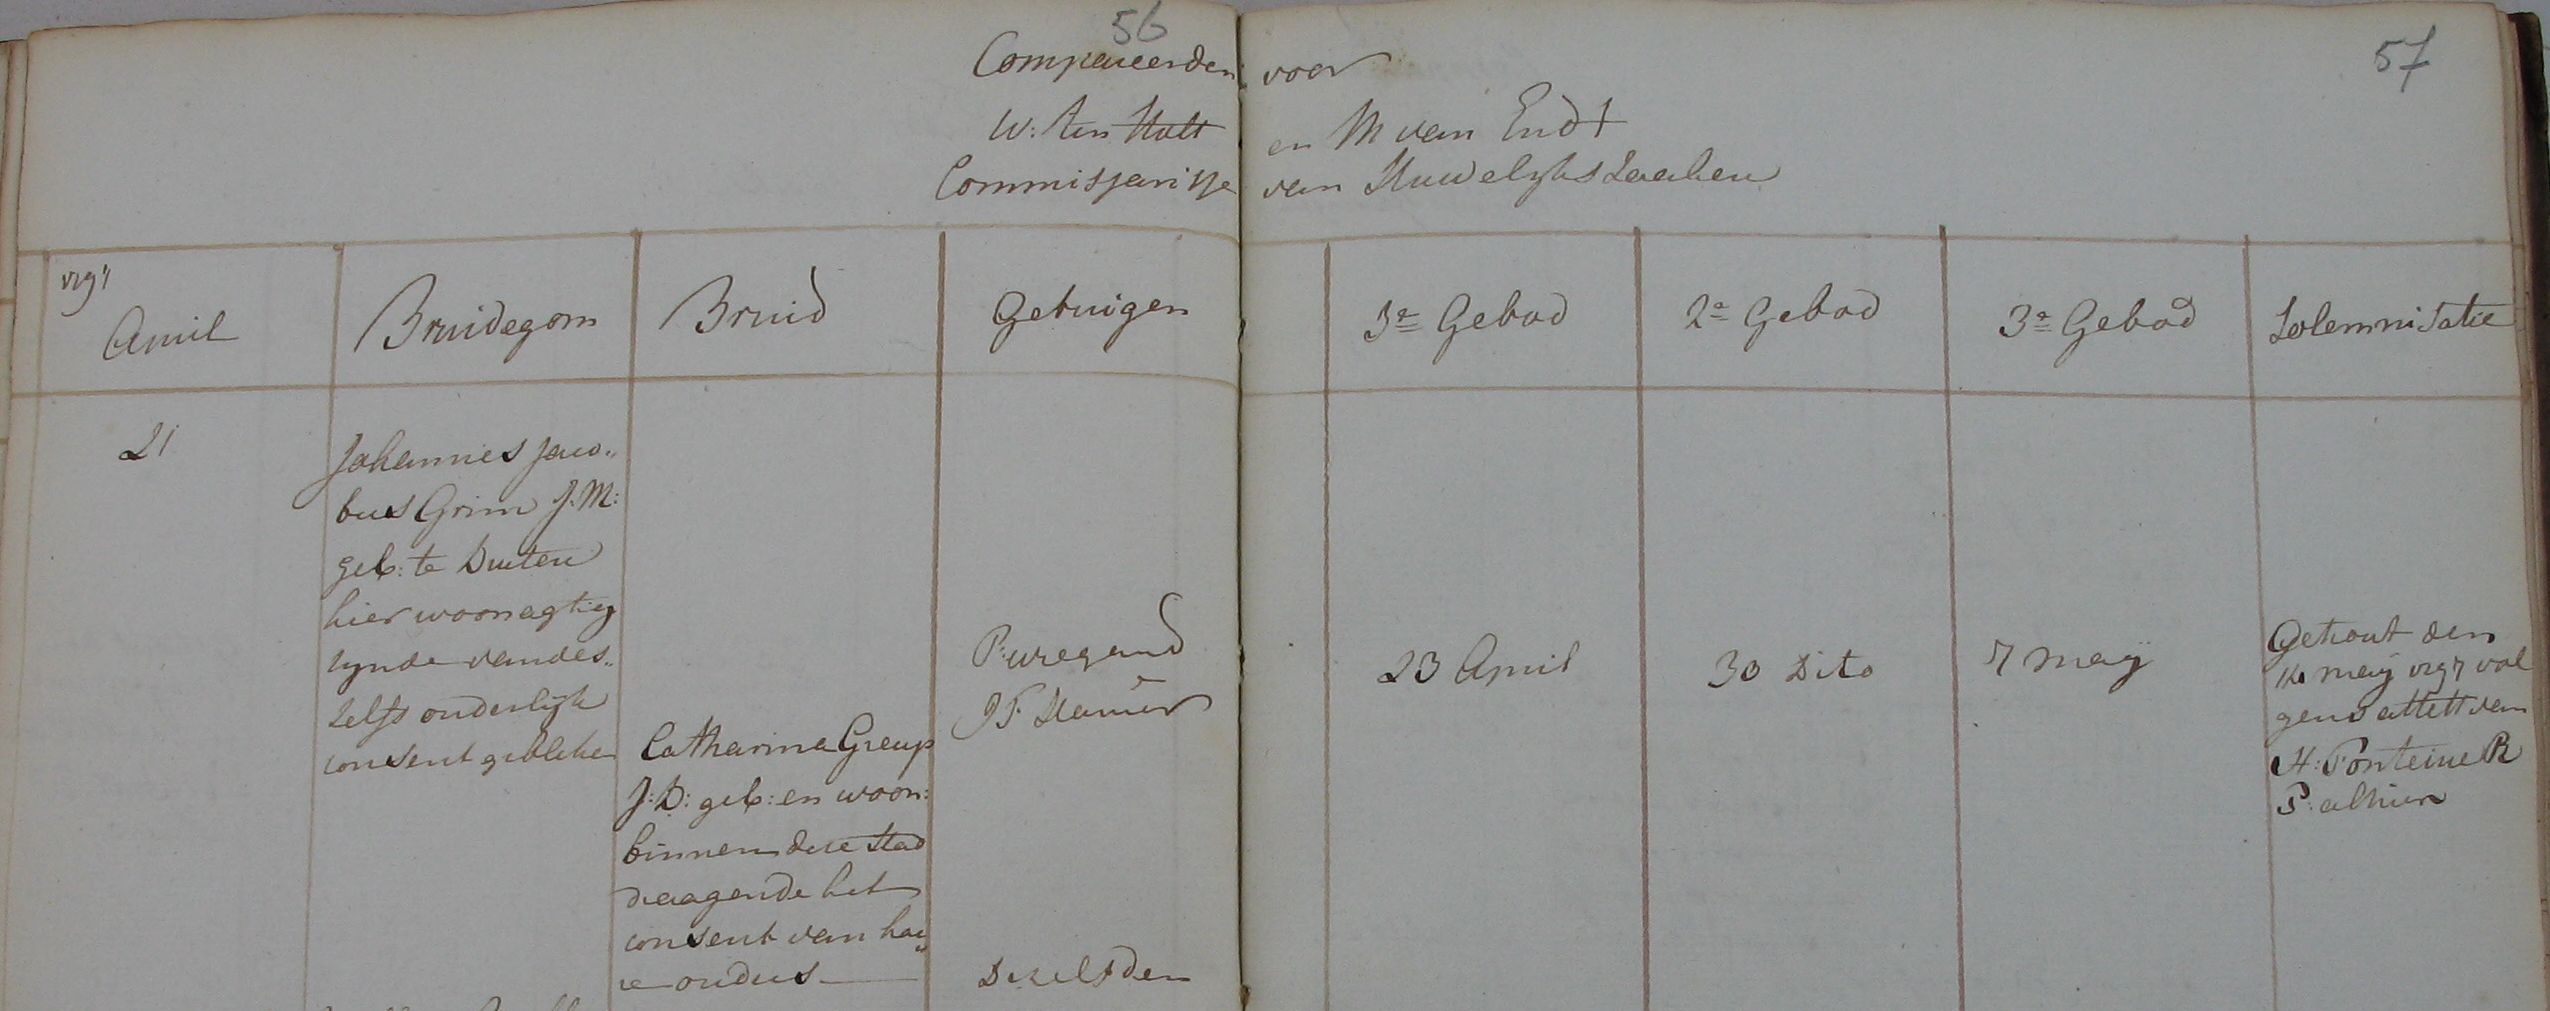 56
57
Compareerden voor
W: ten Holt en M van Endt
Commissarisse van Huwelyks Zaaken
April
Bruidegom
Bruid
Getuigen
3e Gebod
2e Gebod
3e Gebod
Solemnisatie
21
Johannes Jaco„
bus Grim J: M:
geb: te Druten
hier woonagtig
zynde vandes„
zelfs ouderlyk
consent gebleken
Catharina Greup
J: D: geb: en woon:
binnen deze stad
draagende het
consent van haa„
re ouders
P: Wiegand
J F Hamer
Dezelfden
23 April
30 Dito
7 Meij
Getrout den
Meij vol
gens attest van
H: Fonteine R
P: alhier